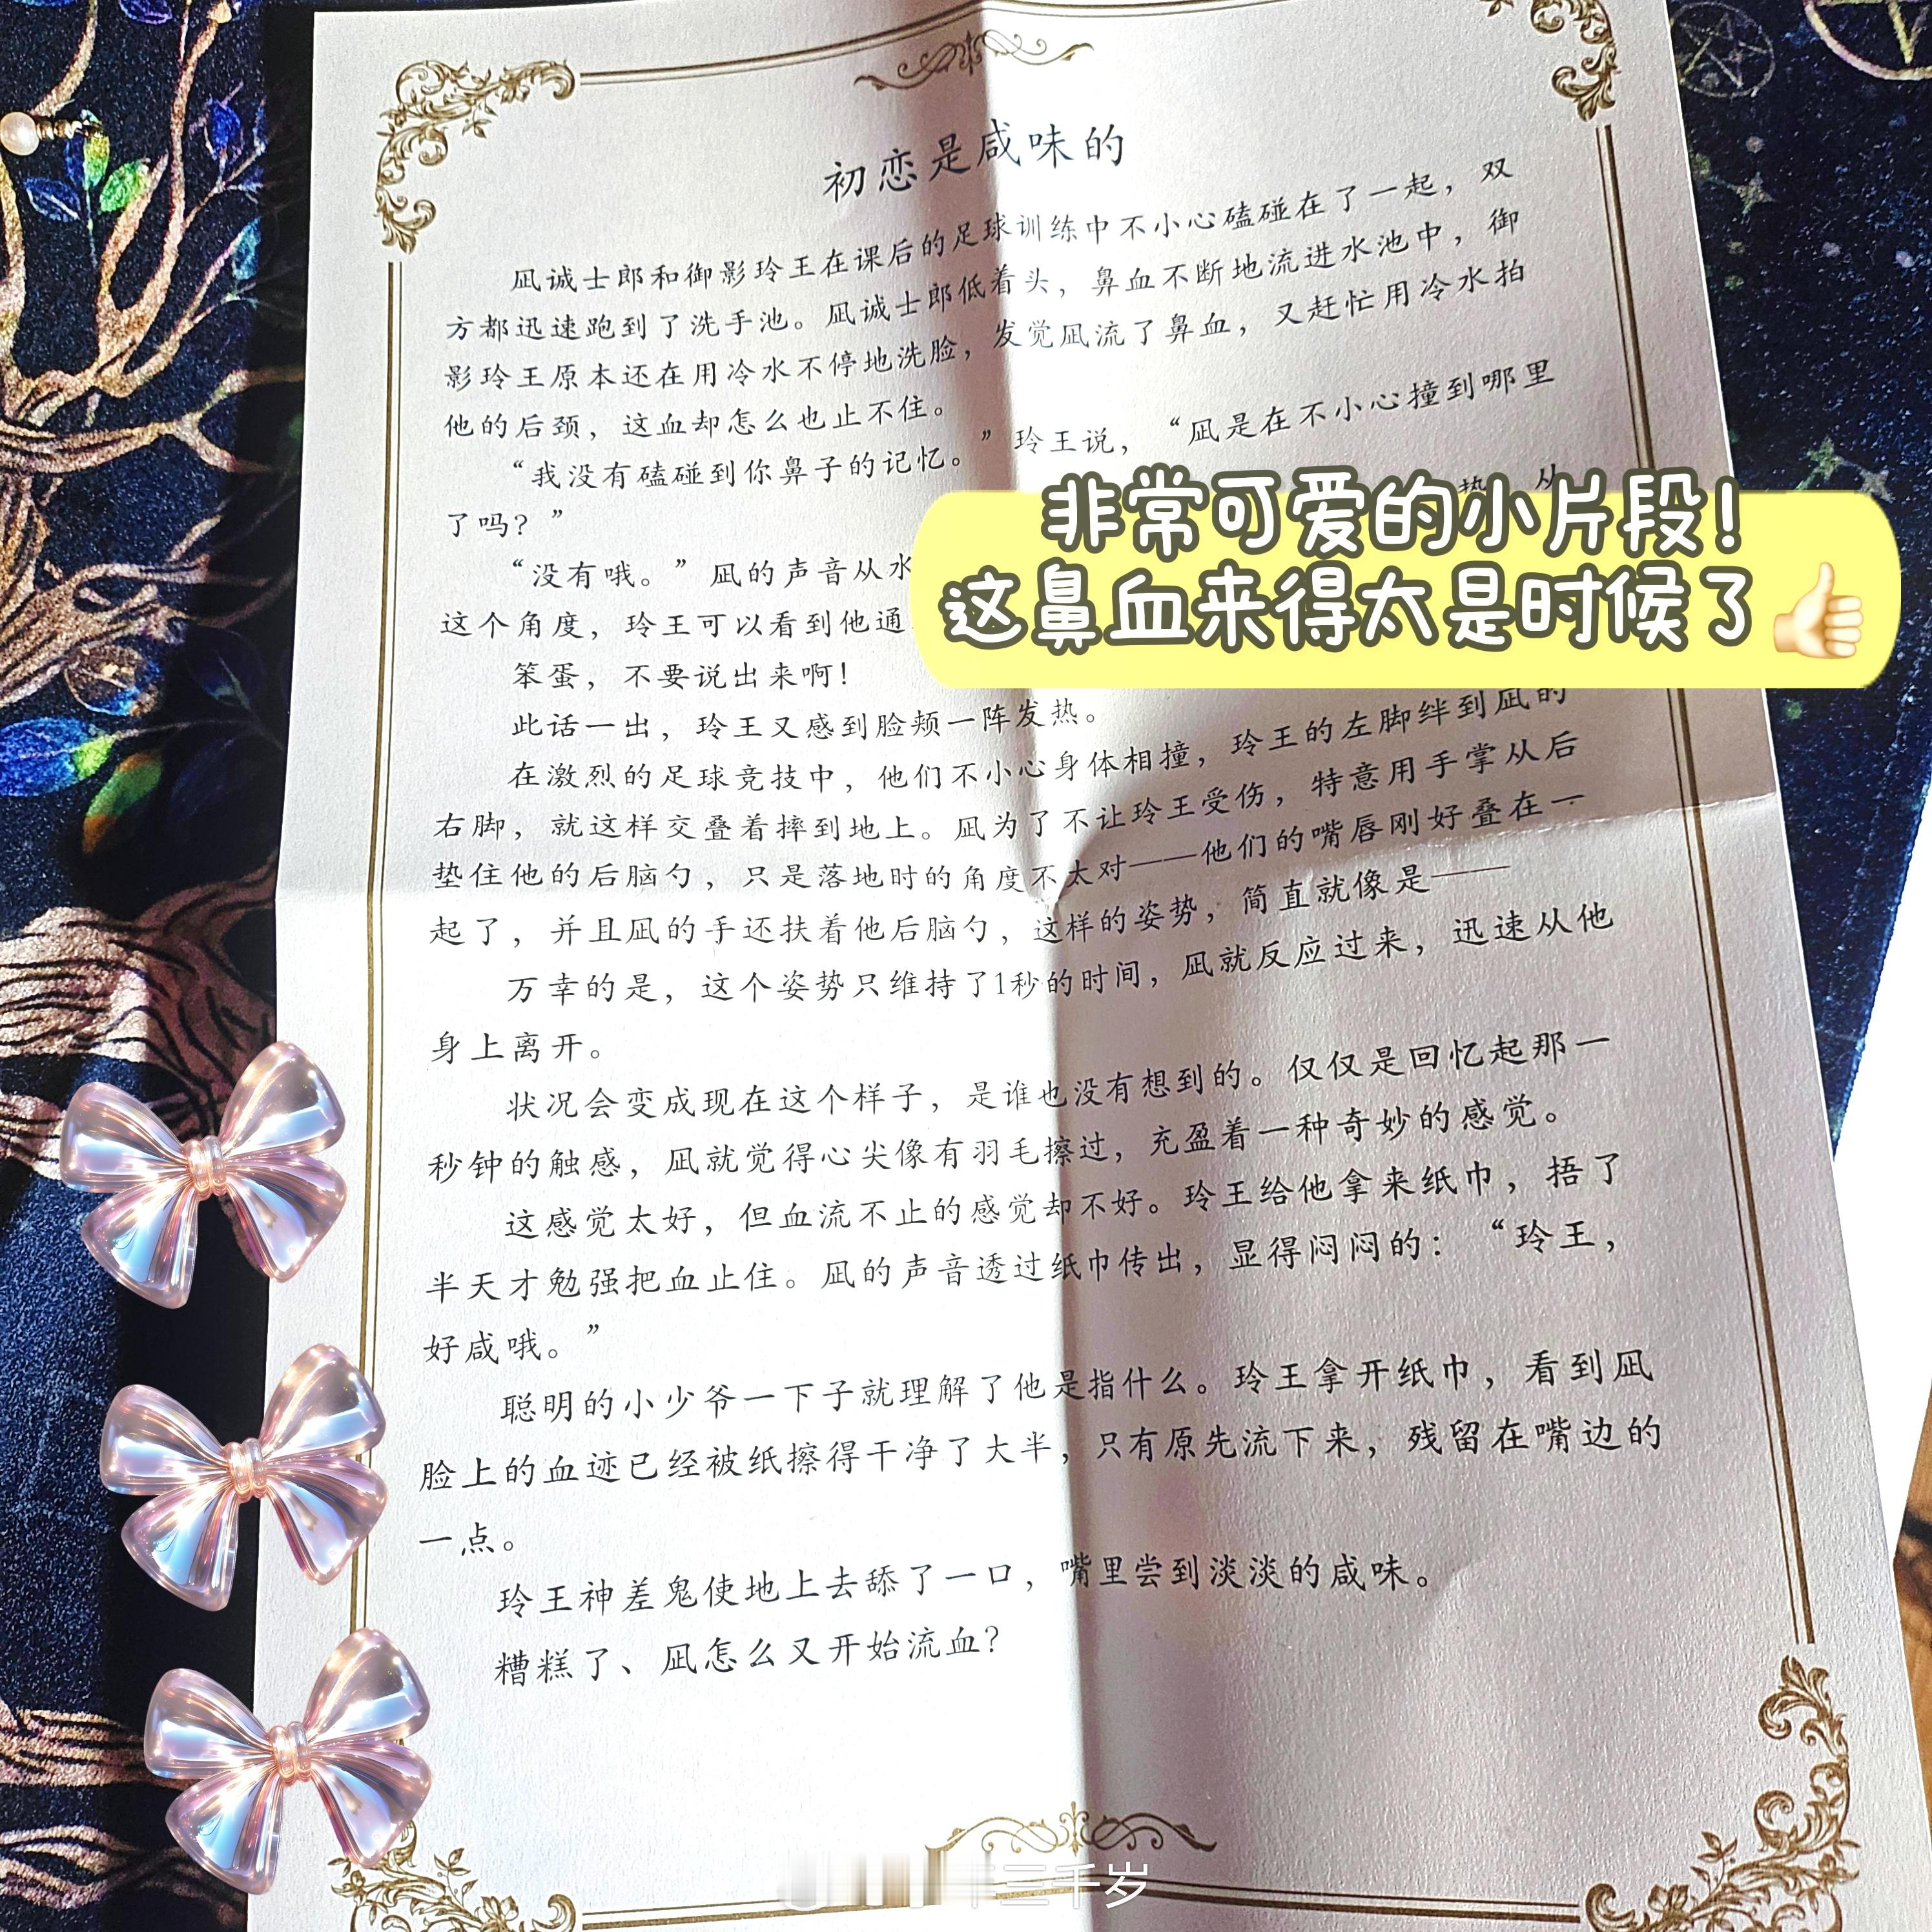 初恋是咸味的
凪诚士郎和御影玲王在课后的足球训练中不小心磕碰在了一起，双
方都迅速跑到了洗手池。凪诚士郎低着头，鼻血不断地流进水池中，御
影玲王原本还在用冷水不停地洗脸，发觉凪流了鼻血，又赶忙用冷水拍
他的后颈，这血却怎么也止不住。
“我没有磕碰到你鼻子的记忆。”玲王说，“凪是在不小心撞到哪里
了吗？”
非常可爱的小片段！
这鼻血来得太是时候了👍
“没有哦。”凪的声音从水
从
这个角度，玲王可以看到他通
笨蛋，不要说出来啊！
此话一出，玲王又感到脸颊一阵发热。
在激烈的足球竞技中，他们不小心身体相撞，玲王的左脚绊到凪的
右脚，就这样交叠着摔到地上。凪为了不让玲王受伤，特意用手掌从后
垫住他的后脑勺，只是落地时的角度不太对——他们的嘴唇刚好叠在一
起了，并且凪的手还扶着他后脑勺，这样的姿势，简直就像是——
万幸的是，这个姿势只维持了1秒的时间，凪就反应过来，迅速从他
身上离开。
状况会变成现在这个样子，是谁也没有想到的。仅仅是回忆起那一
秒钟的触感，凪就觉得心尖像有羽毛擦过，充盈着一种奇妙的感觉。
这感觉太好，但血流不止的感觉却不好。玲王给他拿来纸巾，捂了
半天才勉强把血止住。凪的声音透过纸巾传出，显得闷闷的：“玲王，
好咸哦。”
聪明的小少爷一下子就理解了他是指什么。玲王拿开纸巾，看到凪
脸上的血迹已经被纸擦得干净了大半，只有原先流下来，残留在嘴边的
一点。
玲王神差鬼使地上去舔了一口，嘴里尝到淡淡的咸味。
糟糕了、凪怎么又开始流血？
三千岁